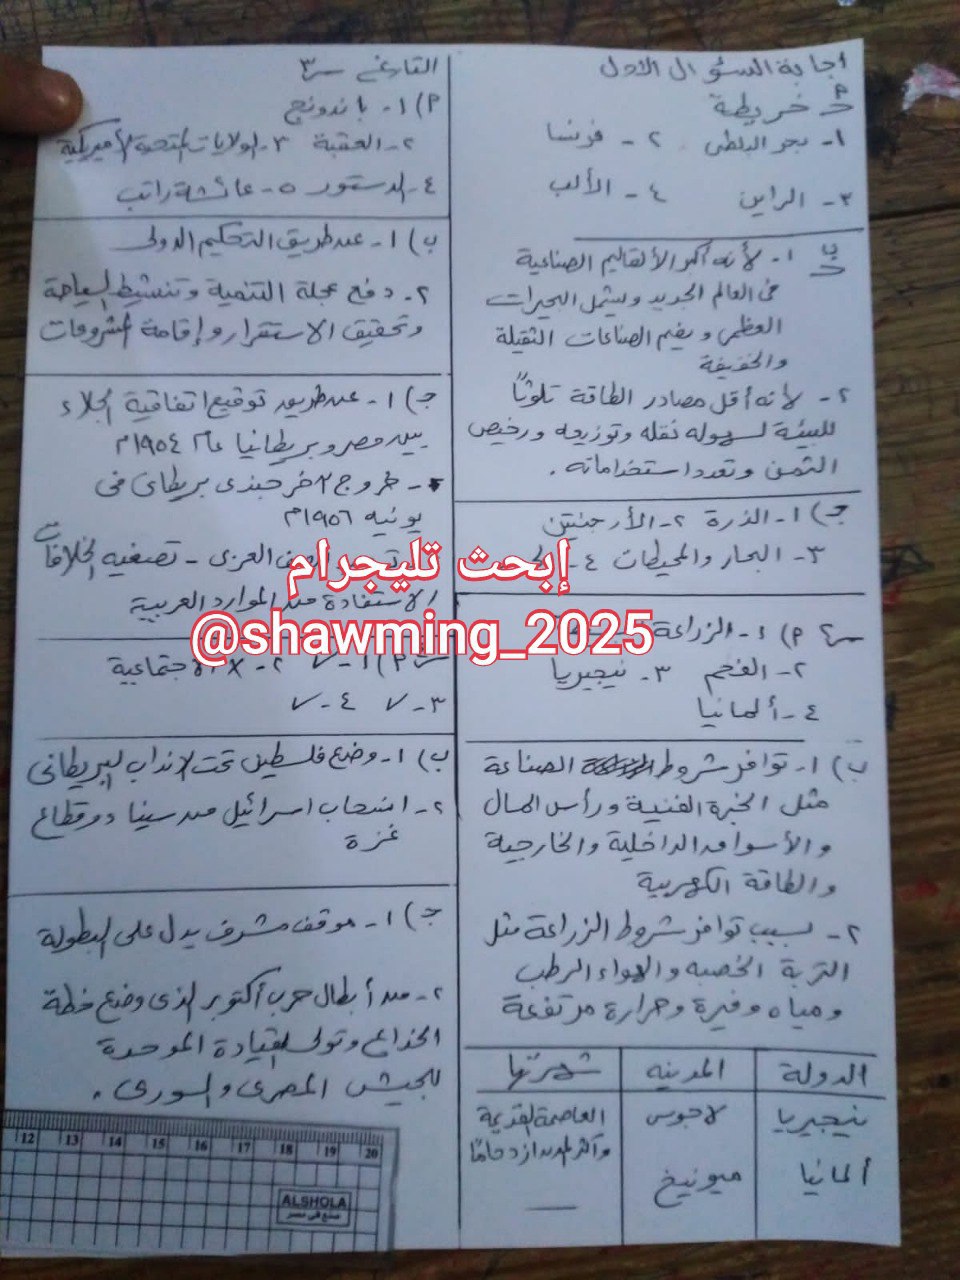 اجابة السؤال الاول
م) خريطة
١- بحر البلطى ٢- فرنسا
٣- الراين ٤- الألب
ب) ١- لأنه أكبر الأقاليم الصناعية
فى العالم الجديد ويشمل البحيرات
العظمى ويضم الصناعات الثقيلة
والخفيفة
٢- لأنه أقل مصادر الطاقة تلوثًا
للبيئة لسهولة نقله وتوزيعه ورخيص
الثمن وتعدد استخداماته.
جـ) ١- الذرة ٢- الأرجنتين
٣- البحار والمحيطات ٤-
س٢ م) ١- الزراعة
٢- الفحم ٣- نيجيريا
٤- ألمانيا
ب) ١- توافر شروط الصناعة
مثل الخبرة الفنية ورأس المال
والأسواق الداخلية والخارجية
والطاقة الكهربية
٢- بسبب توافر شروط الزراعة مثل
التربة الخصبه والهواء الرطب
ومياه وفيرة وحرارة مرتفعة
الدولة المدينه شهرتها
نيجيريا لاجوس العاصمة القديمة
وأكثر المدن ازدحامًا
ألمانيا ميونيخ —
التاريخ س٣
م) ١- باندونج
٢- العقبة ٣- الولايات المتحدة الأمريكية
٤- الدستور ٥- عائشة راتب
ب) ١- عن طريق التحكيم الدولى
٢- دفع عجلة التنمية وتنشيط السياحة
وتحقيق الاستقرار وإقامة المشروعات
جـ) ١- عن طريق توقيع اتفاقية الجلاء
بين مصر وبريطانيا عام ١٩٥٤م
- خروج آخر جندى بريطانى فى
يونيه ١٩٥٦م
الصف العربى - تصفيه الخلافات
الاستفادة من الموارد العربية
س٤ م) ١- ✓ ٢- X الاجتماعية
٣- ✓ ٤- ✓
ب) ١- وضع فلسطين تحت الانتداب البريطانى
٢- انسحاب اسرائيل من سينا و قطاع
غزة
جـ) ١- موقف مشرف يدل على البطولة
٢- من أبطال حرب أكتوبر الذى وضع خطة
الخداع وتولى القيادة الموحدة
للجيش المصرى والسورى.
إبحث تليجرام
@shawming_2025
12 13 14 15 16 17 18 19 20
ALSHOLA
صنع فى مصر